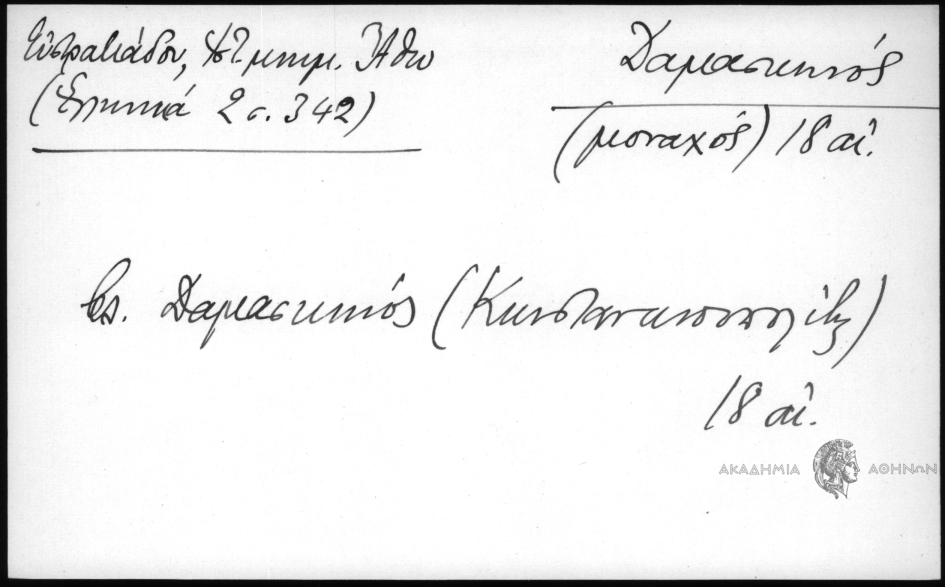 Εὐστρατιάδου, Ἱστ μνημ. Ἄθω
(Ἑλληνικά 2 σ. 342)
Δαμασκηνός
(μοναχός) 18 αἰ.
βλ. Δαμασκηνός (Κωνσταντινουπολίτης)
18 αἰ.
ΑΚΑΔΗΜΙΑ ΑΘΗΝΩΝ